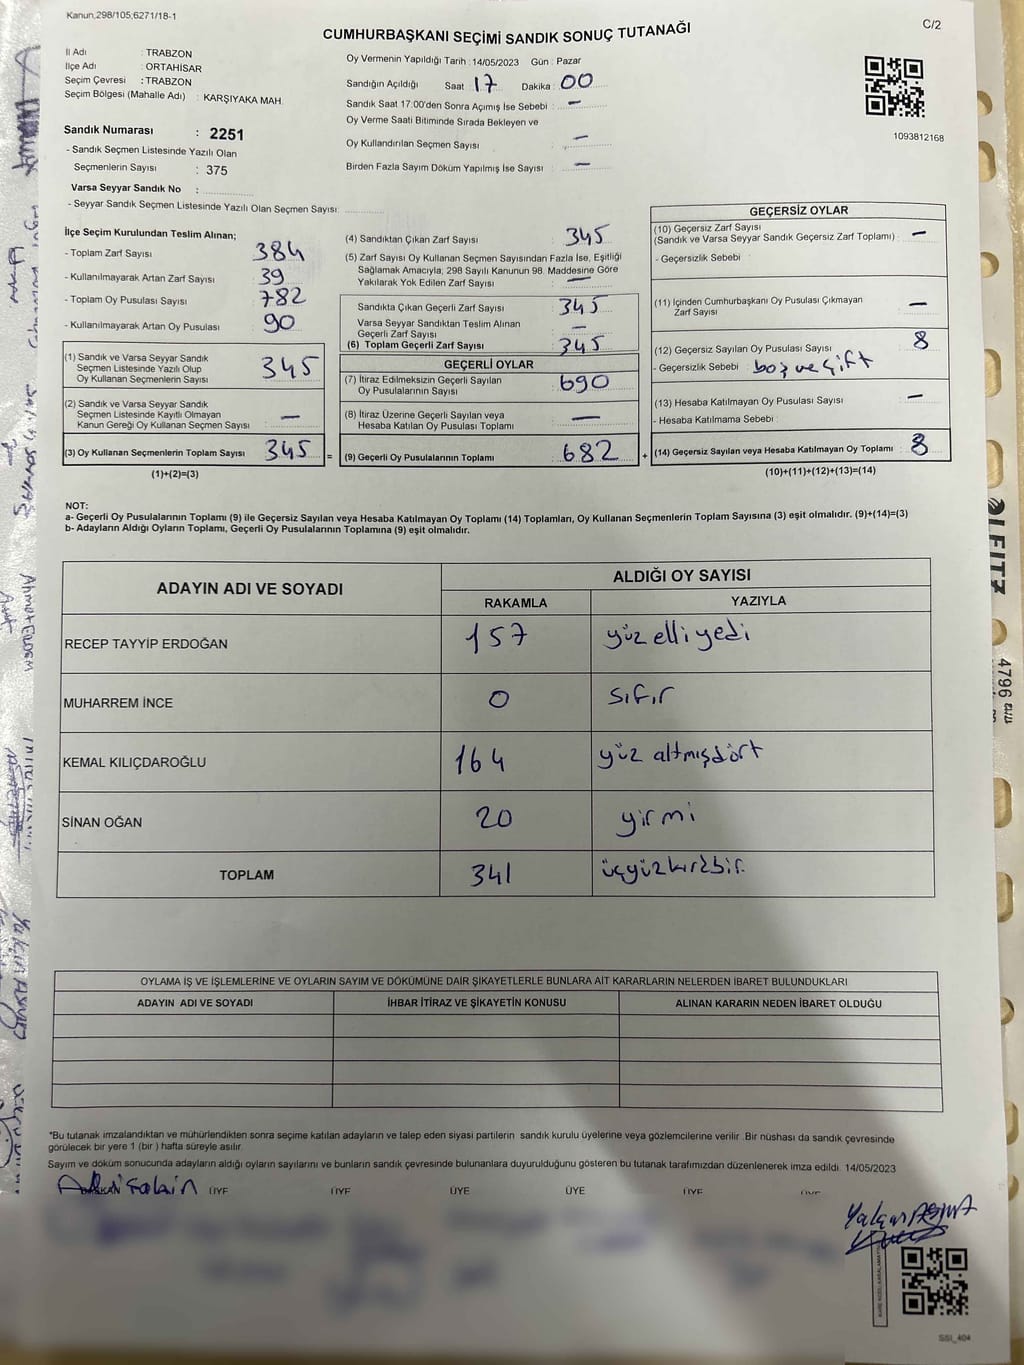 Kanun,298/105,6271/18-1
C/2
CUMHURBAŞKANI SEÇİMİ SANDIK SONUÇ TUTANAĞI
İl Adı : TRABZON
İlçe Adı : ORTAHİSAR
Seçim Çevresi : TRABZON
Seçim Bölgesi (Mahalle Adı) : KARŞIYAKA MAH.
Sandık Numarası : 2251
- Sandık Seçmen Listesinde Yazılı Olan
Seçmenlerin Sayısı : 375
Varsa Seyyar Sandık No :
- Seyyar Sandık Seçmen Listesinde Yazılı Olan Seçmen Sayısı:
Oy Vermenin Yapıldığı Tarih : 14/05/2023 Gün : Pazar
Sandığın Açıldığı Saat 17 Dakika : 00
Sandık Saat 17:00'den Sonra Açımış İse Sebebi : -
Oy Verme Saati Bitiminde Sırada Bekleyen ve
Oy Kullandırılan Seçmen Sayısı : -
Birden Fazla Sayım Döküm Yapılmış İse Sayısı : -
1093812168
İlçe Seçim Kurulundan Teslim Alınan;
- Toplam Zarf Sayısı : 384
- Kullanılmayarak Artan Zarf Sayısı : 39
- Toplam Oy Pusulası Sayısı : 782
- Kullanılmayarak Artan Oy Pusulası : 90
(1) Sandık ve Varsa Seyyar Sandık
Seçmen Listesinde Yazılı Olup
Oy Kullanan Seçmenlerin Sayısı : 345
(2) Sandık ve Varsa Seyyar Sandık
Seçmen Listesinde Kayıtlı Olmayan
Kanun Gereği Oy Kullanan Seçmen Sayısı : -
(3) Oy Kullanan Seçmenlerin Toplam Sayısı : 345 =
(1)+(2)=(3)
(4) Sandıktan Çıkan Zarf Sayısı : 345
(5) Zarf Sayısı Oy Kullanan Seçmen Sayısından Fazla İse, Eşitliği
Sağlamak Amacıyla; 298 Sayılı Kanunun 98. Maddesine Göre
Yakılarak Yok Edilen Zarf Sayısı : -
Sandıkta Çıkan Geçerli Zarf Sayısı : 345
Varsa Seyyar Sandıktan Teslim Alınan
Geçerli Zarf Sayısı : -
(6) Toplam Geçerli Zarf Sayısı : 345
GEÇERLİ OYLAR
(7) İtiraz Edilmeksizin Geçerli Sayılan
Oy Pusulalarının Sayısı : 690
(8) İtiraz Üzerine Geçerli Sayılan veya
Hesaba Katılan Oy Pusulası Toplamı : -
(9) Geçerli Oy Pusulalarının Toplamı : 682 +
GEÇERSİZ OYLAR
(10) Geçersiz Zarf Sayısı
(Sandık ve Varsa Seyyar Sandık Geçersiz Zarf Toplamı) : -
- Geçersizlik Sebebi :
(11) İçinden Cumhurbaşkanı Oy Pusulası Çıkmayan
Zarf Sayısı : -
(12) Geçersiz Sayılan Oy Pusulası Sayısı : 8
- Geçersizlik Sebebi : boş ve çift
(13) Hesaba Katılmayan Oy Pusulası Sayısı : -
- Hesaba Katılmama Sebebi :
(14) Geçersiz Sayılan veya Hesaba Katılmayan Oy Toplamı : 8
(10)+(11)+(12)+(13)=(14)
NOT:
a- Geçerli Oy Pusulalarının Toplamı (9) ile Geçersiz Sayılan veya Hesaba Katılmayan Oy Toplamı (14) Toplamları, Oy Kullanan Seçmenlerin Toplam Sayısına (3) eşit olmalıdır. (9)+(14)=(3)
b- Adayların Aldığı Oyların Toplamı, Geçerli Oy Pusulalarının Toplamına (9) eşit olmalıdır.
ADAYIN ADI VE SOYADI ALDIĞI OY SAYISI
RAKAMLA YAZIYLA
RECEP TAYYİP ERDOĞAN 157 yüz elli yedi
MUHARREM İNCE 0 sıfır
KEMAL KILIÇDAROĞLU 164 yüz altmışdört
SİNAN OĞAN 20 yirmi
TOPLAM 341 üçyüzkırkbir
OYLAMA İŞ VE İŞLEMLERİNE VE OYLARIN SAYIM VE DÖKÜMÜNE DAİR ŞİKAYETLERLE BUNLARA AİT KARARLARIN NELERDEN İBARET BULUNDUKLARI
ADAYIN ADI VE SOYADI İHBAR İTİRAZ VE ŞİKAYETİN KONUSU ALINAN KARARIN NEDEN İBARET OLDUĞU
*Bu tutanak imzalandıktan ve mühürlendikten sonra seçime katılan adayların ve talep eden siyasi partilerin sandık kurulu üyelerine veya gözlemcilerine verilir .Bir nüshası da sandık çevresinde
görülecek bir yere 1 (bir ) hafta süreyle asılır.
Sayım ve döküm sonucunda adayların aldığı oyların sayılarını ve bunların sandık çevresinde bulunanlara duyurulduğunu gösteren bu tutanak tarafımızdan düzenlenerek imza edildi. 14/05/2023
BAŞKAN ÜYE ÜYE ÜYE ÜYE ÜYE ÜYE
SSI_404
LEITZ
4796